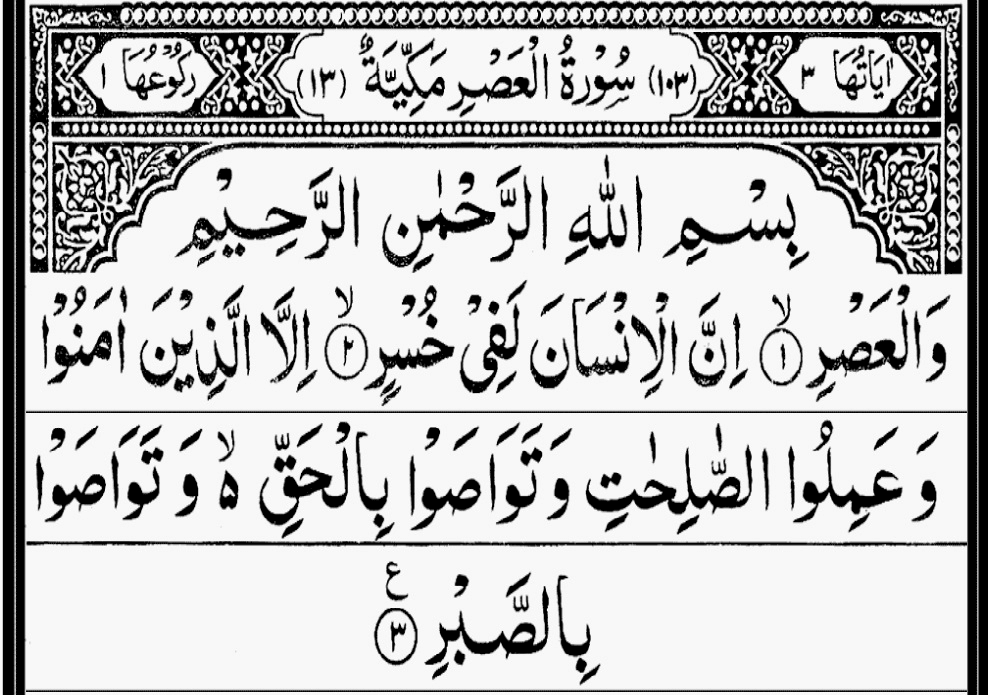 اٰیَاتُهَا ٣ (١٠٣) سُوْرَةُ الْعَصْرِ مَكِّیَّةٌ (١٣) رُكُوْعُهَا ١
بِسْمِ اللّٰهِ الرَّحْمٰنِ الرَّحِیْمِ
وَالْعَصْرِ ۙ﴿١﴾ اِنَّ الْاِنْسَانَ لَفِیْ خُسْرٍ ۙ﴿٢﴾ اِلَّا الَّذِیْنَ اٰمَنُوْا
وَ عَمِلُوا الصّٰلِحٰتِ وَ تَوَاصَوْا بِالْحَقِّ ۬ۙ وَ تَوَاصَوْا
بِالصَّبْرِ ﴿٣﴾ ع